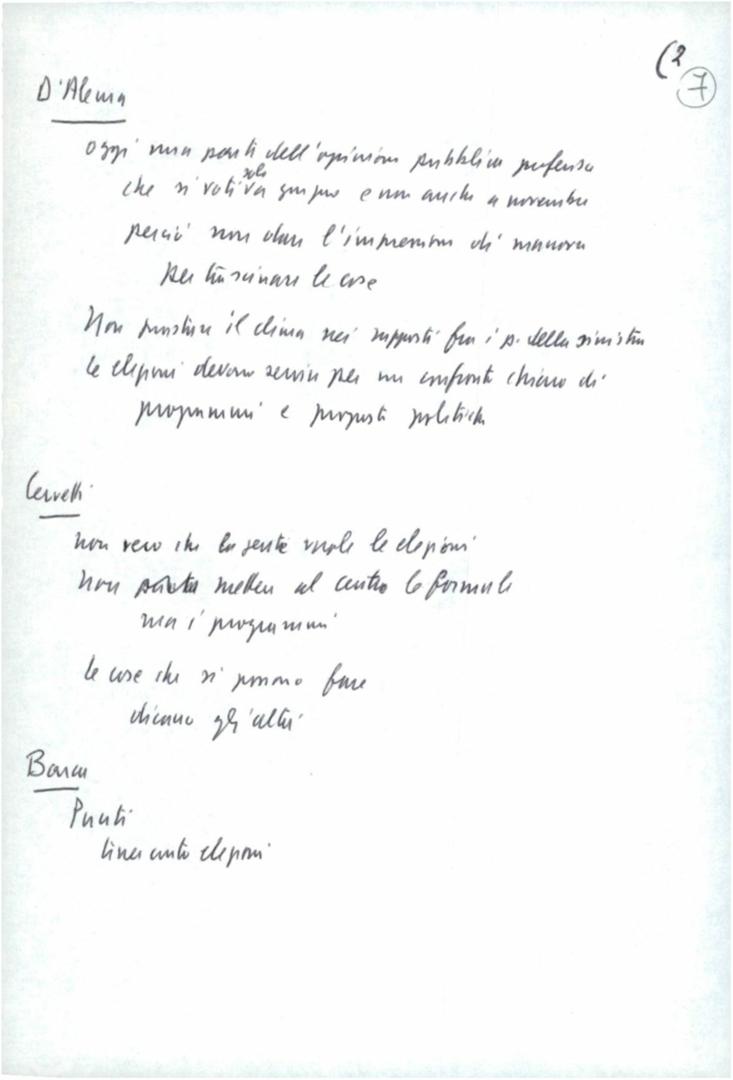 (2
7
D'Alema
oggi una parte dell'opinione pubblica
che si voti solo giugno e non anche a novembre
perciò non dare l'impressione di manovra
per trascinare le cose
Non guastare il clima nei rapporti fra i p. della sinistra
le elezioni devono servire per un confronto chiaro di
programmi e proposte politiche
Cervetti
non vero che la gente vuole le elezioni
Non mettere al centro le formule
ma i programmi
le cose che si possono fare
dicano gli altri
Barca
Punti
linea contro elezioni